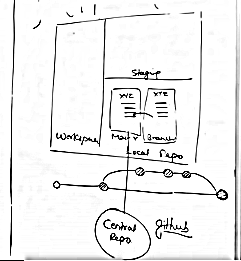 Staging
XYZ XYZ
Workspace Main Branch
Local Repo
Central
Repo
Github